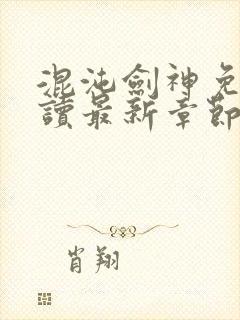 混沌劍神免
讀最新章節
肖翔